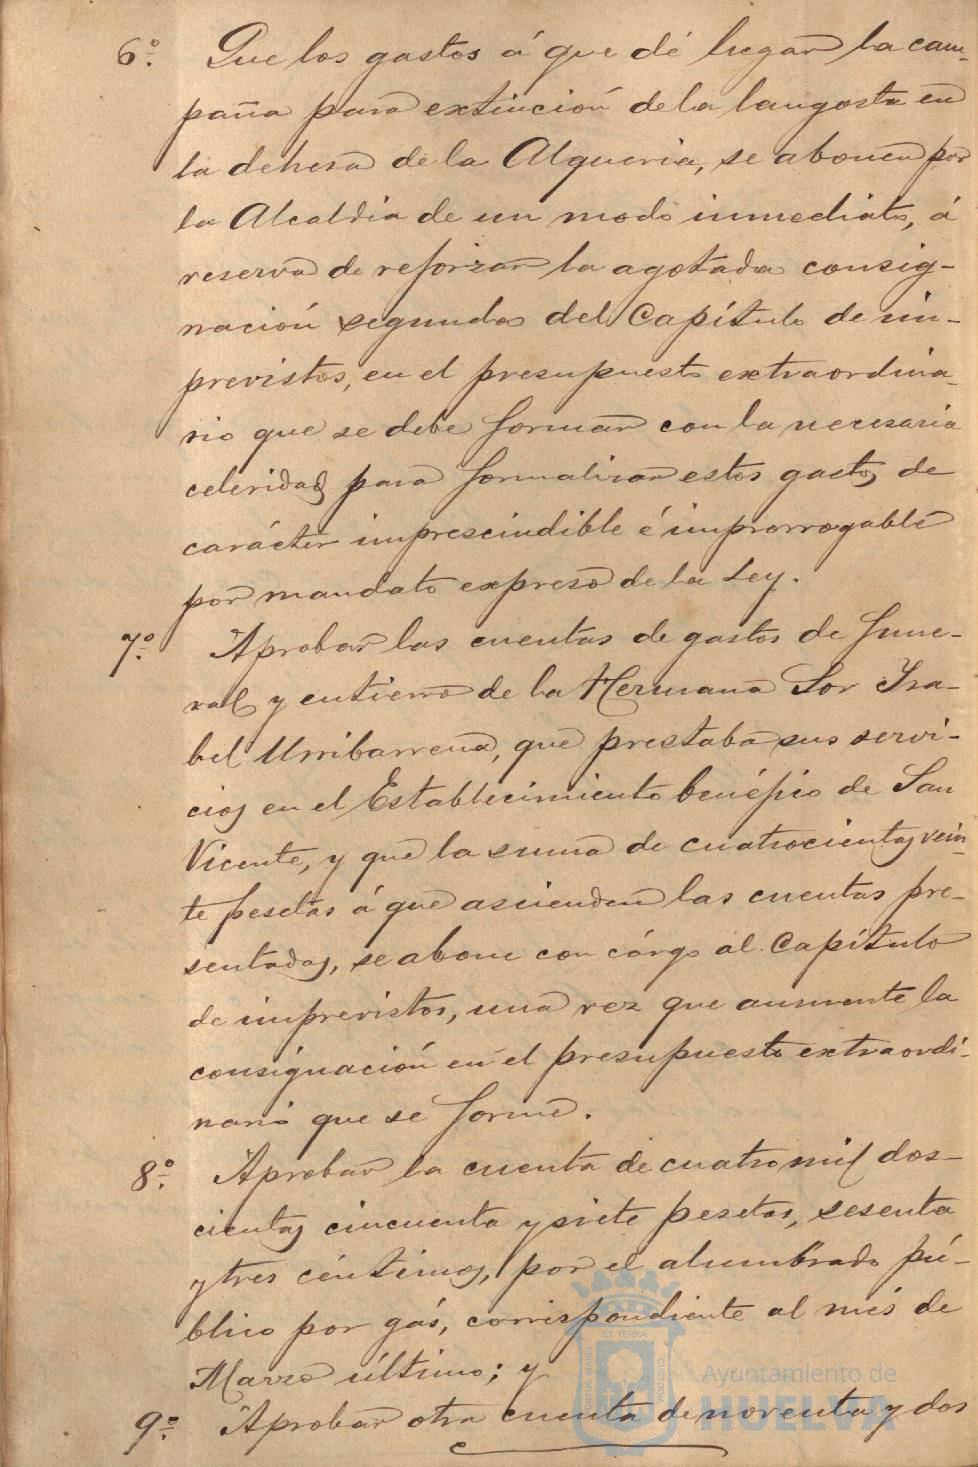 6.º Que los gastos á que dé lugar la cam-
paña para extinción de la langosta en
la dehesa de la Alqueria, se abonen por
la Alcaldia de un modo inmediato, á
reserva de reforzar la agotada consig-
nación segunda del Capítulo de im-
previstos, en el presupuesto extraordina-
rio que se debe formar con la necesaria
celeridad para formalizar estos gastos de
carácter imprescindible é improrrogable
por mandato expreso de la Ley.
7.º Aprobar las cuentas de gastos de fune-
ral y entierro de la Hermana Sor Ysa-
bel Urribarrena, que prestaba sus servi-
cios en el Establecimiento benéfico de San
Vicente, y que la suma de cuatrocientas vein-
te pesetas á que ascienden las cuentas pre-
sentadas, se abone con cárgo al Capítulo
de imprevistos, una vez que aumente la
consignación en el presupuesto extraordi-
nario que se forme.
8.º Aprobar la cuenta de cuatro mil dos-
cientas cincuenta y siete pesetas, sesenta
y tres céntimos, por el alumbrado pú-
blico por gás, correspondiente al més de
Marzo último; y
9.º Aprobar otra cuenta de noventa y dos
Ayuntamiento de
HUELVA